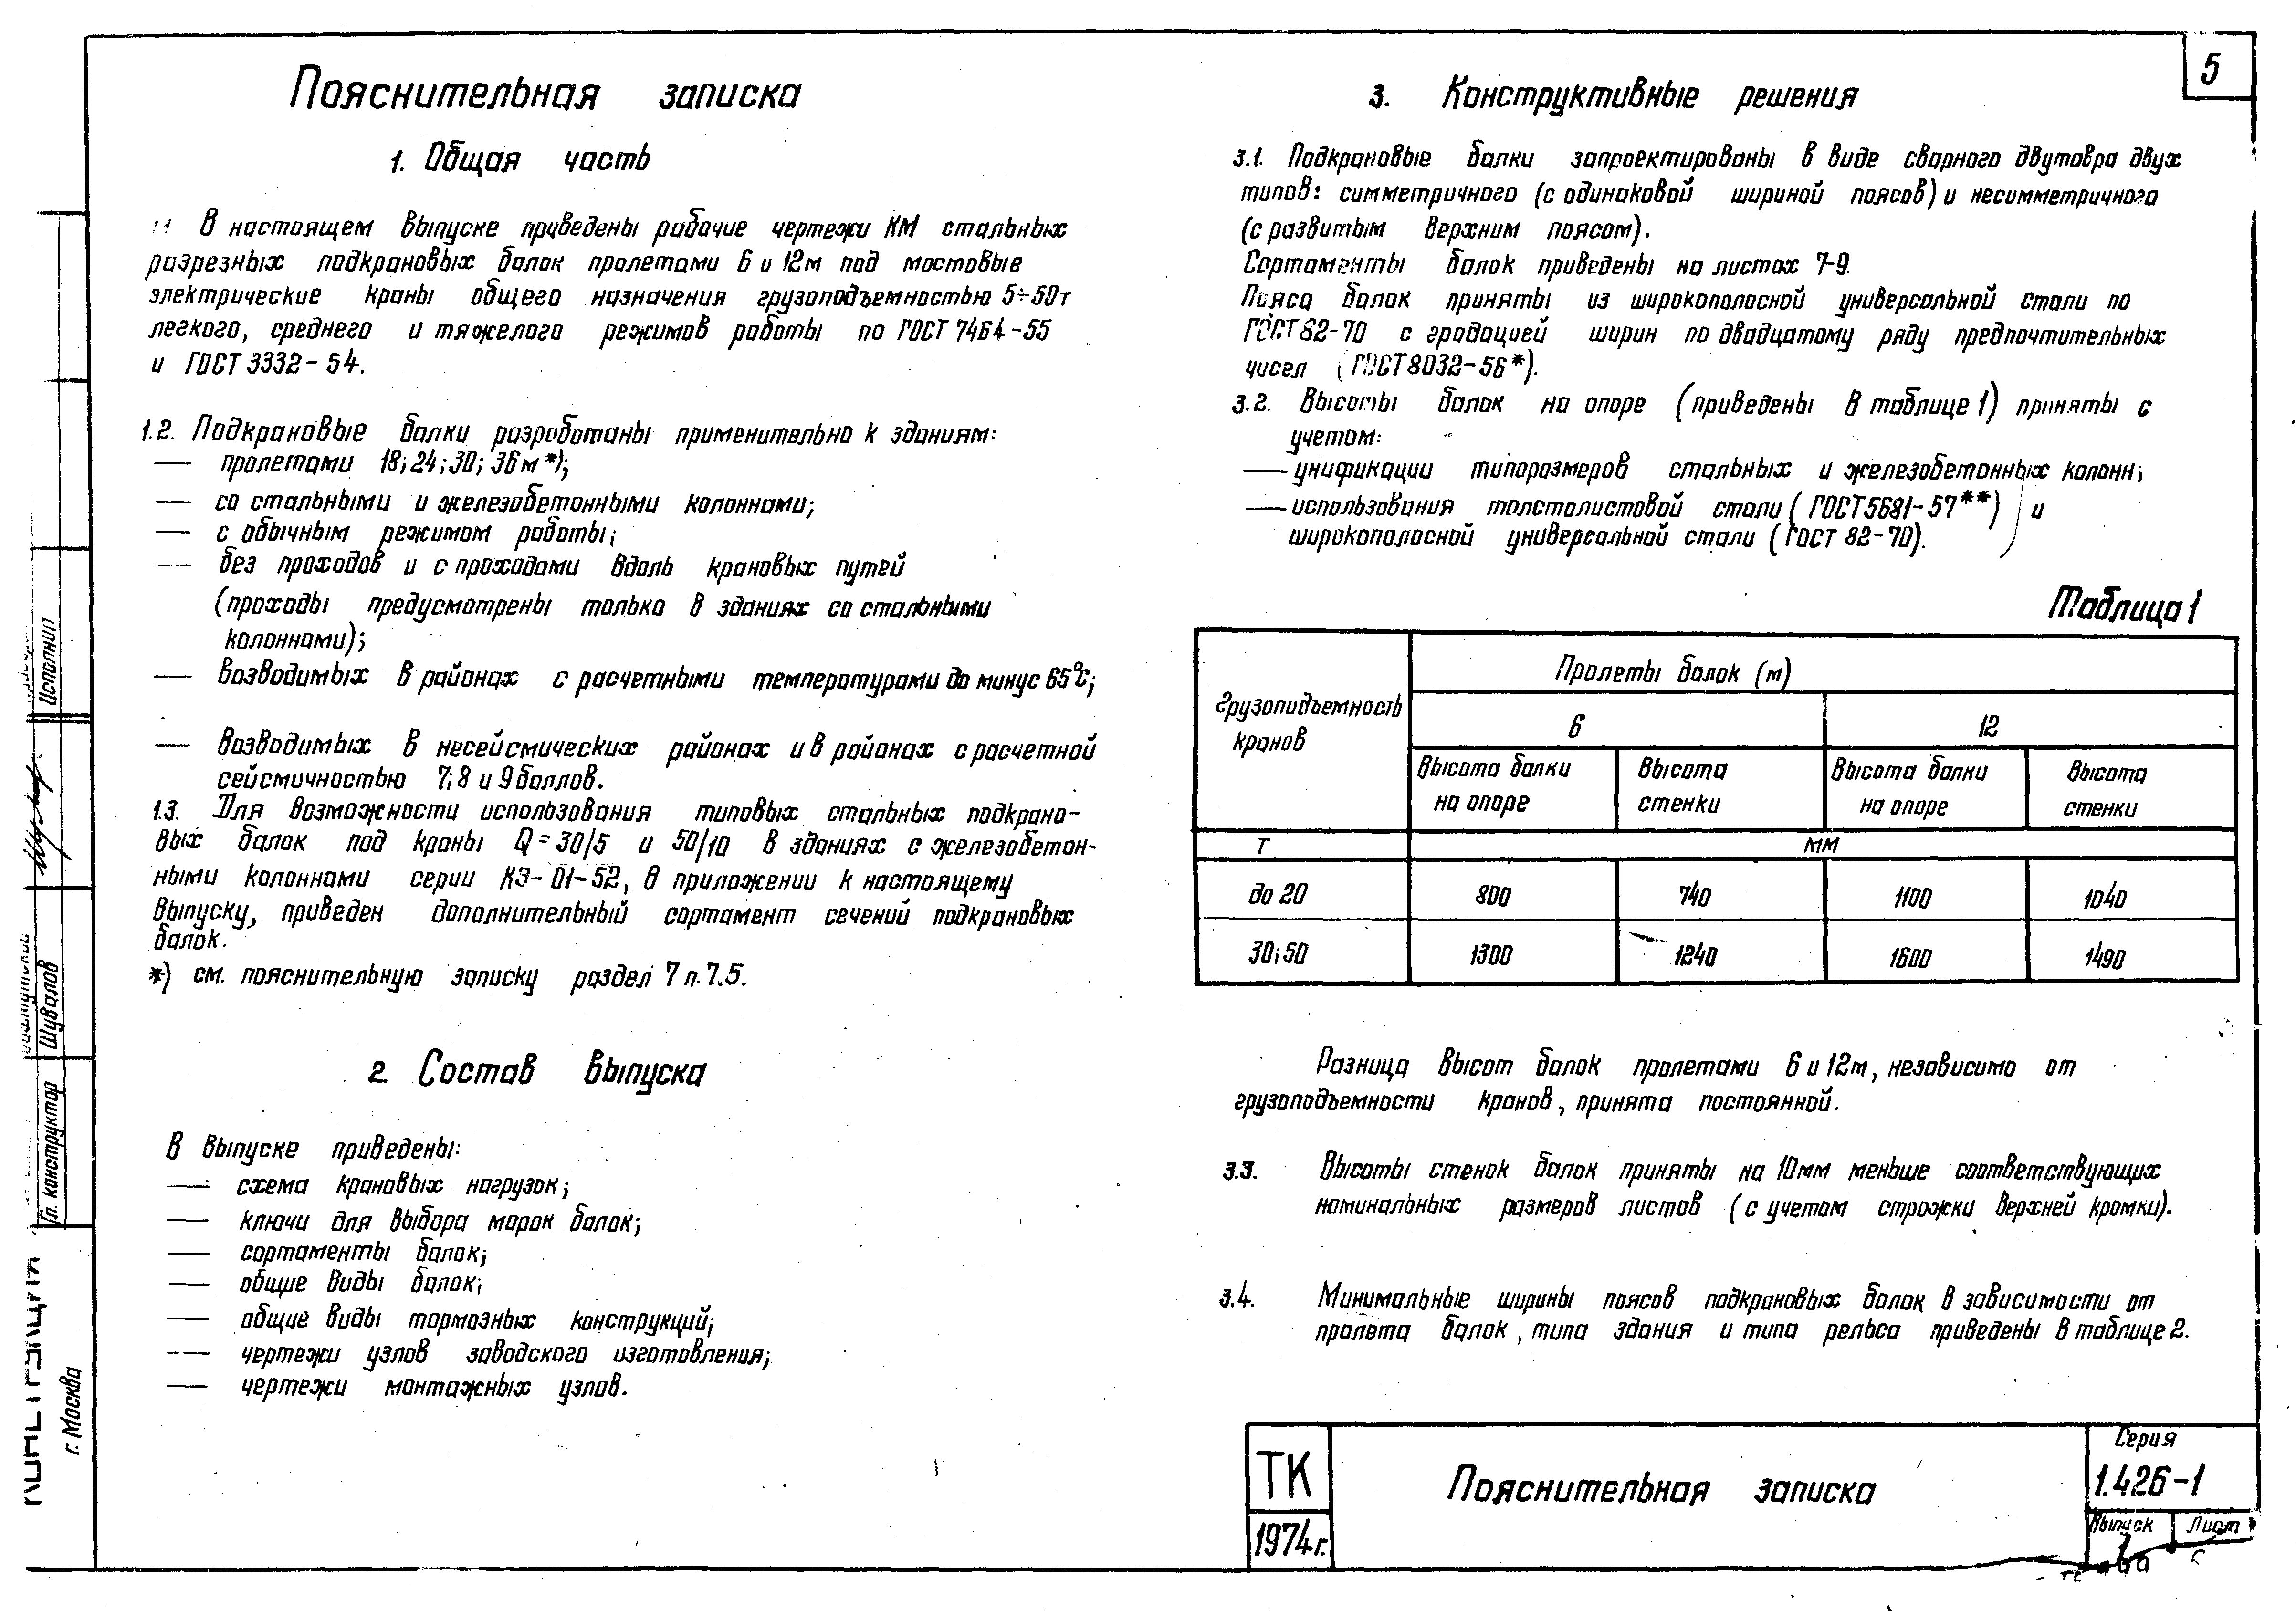 5
Пояснительная записка
1. Общая часть
В настоящем выпуске приведены рабочие чертежи КМ стальных
разрезных подкрановых балок пролетами 6 и 12м под мостовые
электрические краны общего назначения грузоподъемностью 5÷50т
легкого, среднего и тяжелого режимов работы по ГОСТ 7464-55
и ГОСТ 3332-54.
1.2. Подкрановые балки разработаны применительно к зданиям:
— пролетами 18; 24; 30; 36м *);
— со стальными и железобетонными колоннами;
— с обычным режимом работы;
— без проходов и с проходами вдоль крановых путей
(проходы предусмотрены только в зданиях со стальными
колоннами);
— возводимых в районах с расчетными температурами до минус 65°С;
— возводимых в несейсмических районах и в районах с расчетной
сейсмичностью 7; 8 и 9 баллов.
1.3. Для возможности использования типовых стальных подкрано-
вых балок под краны Q=30/5 и 50/10 в зданиях с железобетон-
ными колоннами серии КЭ-01-52, в приложении к настоящему
выпуску, приведен дополнительный сортамент сечений подкрановых
балок.
*) см. пояснительную записку раздел 7 п.7.5.
2. Состав выпуска
В выпуске приведены:
— схема крановых нагрузок;
— ключи для выбора марок балок;
— сортаменты балок;
— общие виды балок;
— общие виды тормозных конструкций;
— чертежи узлов заводского изготовления;
— чертежи монтажных узлов.
3. Конструктивные решения
3.1. Подкрановые балки запроектированы в виде сварного двутавра двух
типов: симметричного (с одинаковой шириной поясов) и несимметричного
(с развитым верхним поясом).
Сортаменты балок приведены на листах 7-9.
Пояса балок приняты из широкополосной универсальной стали по
ГОСТ 82-70 с градацией ширин по двадцатому ряду предпочтительных
чисел (ГОСТ 8032-56*).
3.2. Высоты балок на опоре (приведены в таблице 1) приняты с
учетом:
— унификации типоразмеров стальных и железобетонных колонн;
— использования толстолистовой стали (ГОСТ 5681-57**) и
широкополосной универсальной стали (ГОСТ 82-70).
Таблица 1
Грузоподъемность кранов
Пролеты балок (м)
6 12
Высота балки на опоре Высота стенки Высота балки на опоре Высота стенки
Т мм
до 20 800 740 1100 1040
30; 50 1300 1240 1600 1490
Разница высот балок пролетами 6 и 12м, независимо от
грузоподъемности кранов, принята постоянной.
3.3. Высоты стенок балок приняты на 10мм меньше соответствующих
номинальных размеров листов (с учетом строжки верхней кромки).
3.4. Минимальные ширины поясов подкрановых балок в зависимости от
пролета балок, типа здания и типа рельса приведены в таблице 2.
ТК
1974г.
Пояснительная записка
Серия
1.426-1
Выпуск Лист
Исполнил
Шувалов
Гл. конструктор
г. Москва